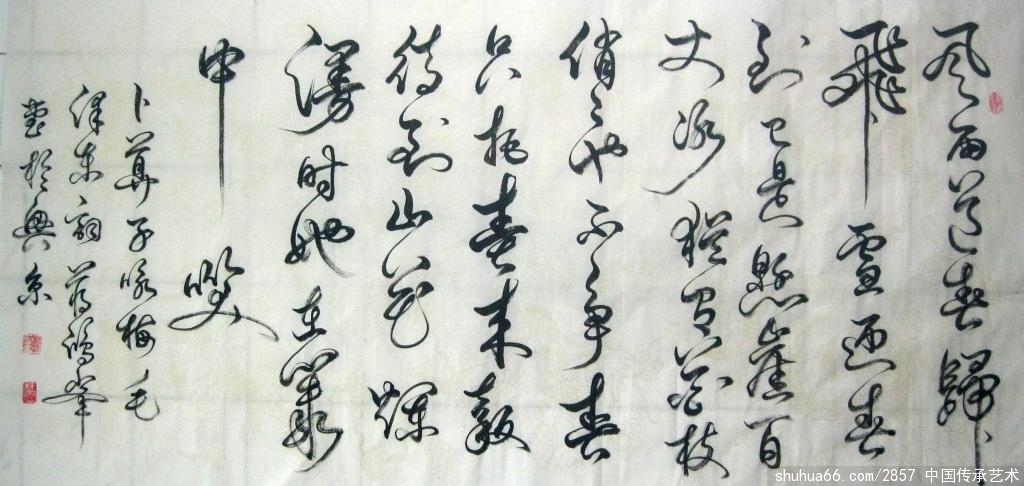 风雨送春歸
飛雪迎春
到已是懸崖百
丈冰猶有花枝
俏俏也不争春
只把春来報
待到山花爛
漫時她在叢
中笑
卜算子咏梅 毛
泽东詞
書於興京
shuhua66.com/2857 中国传承艺术